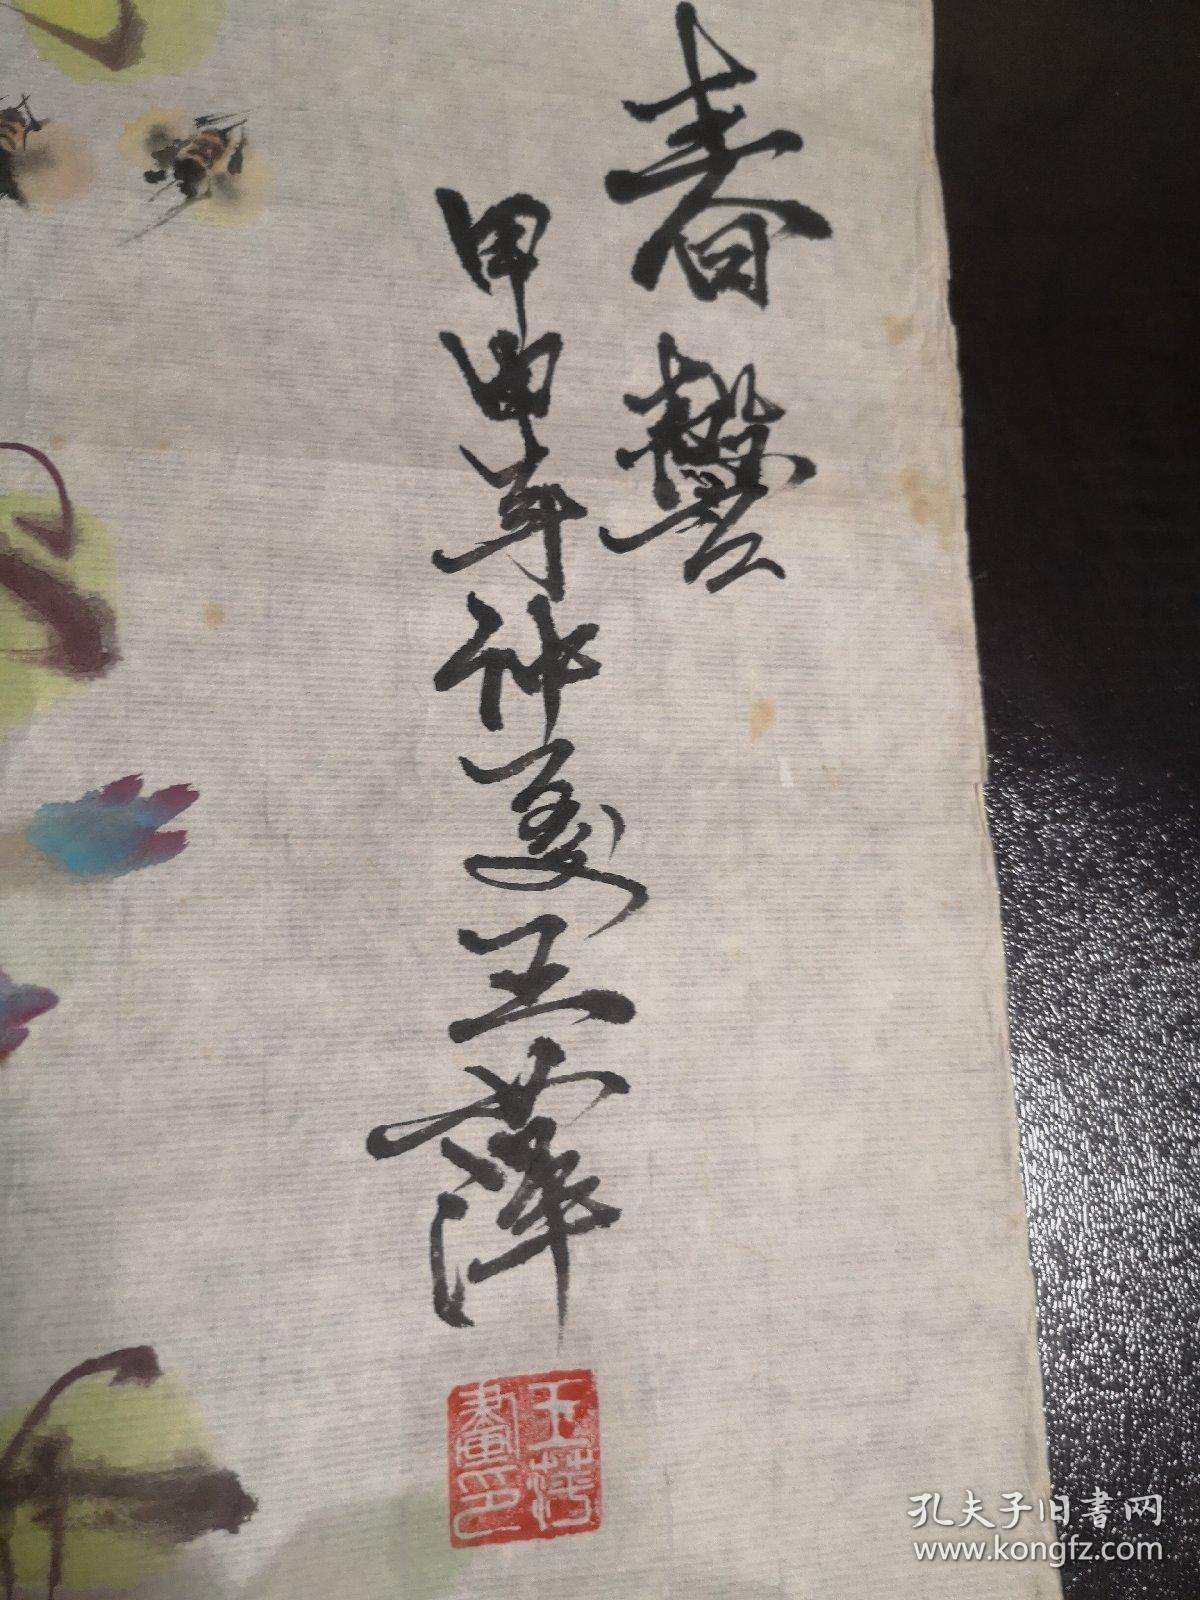 春艷
甲申年仲夏王萍
王萍
畫印
孔夫子旧書网
www.kongfz.com